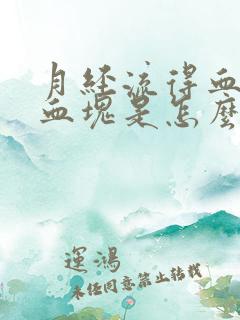 月經流得血
血塊是怎麼
運鴻
未任同意禁止转载